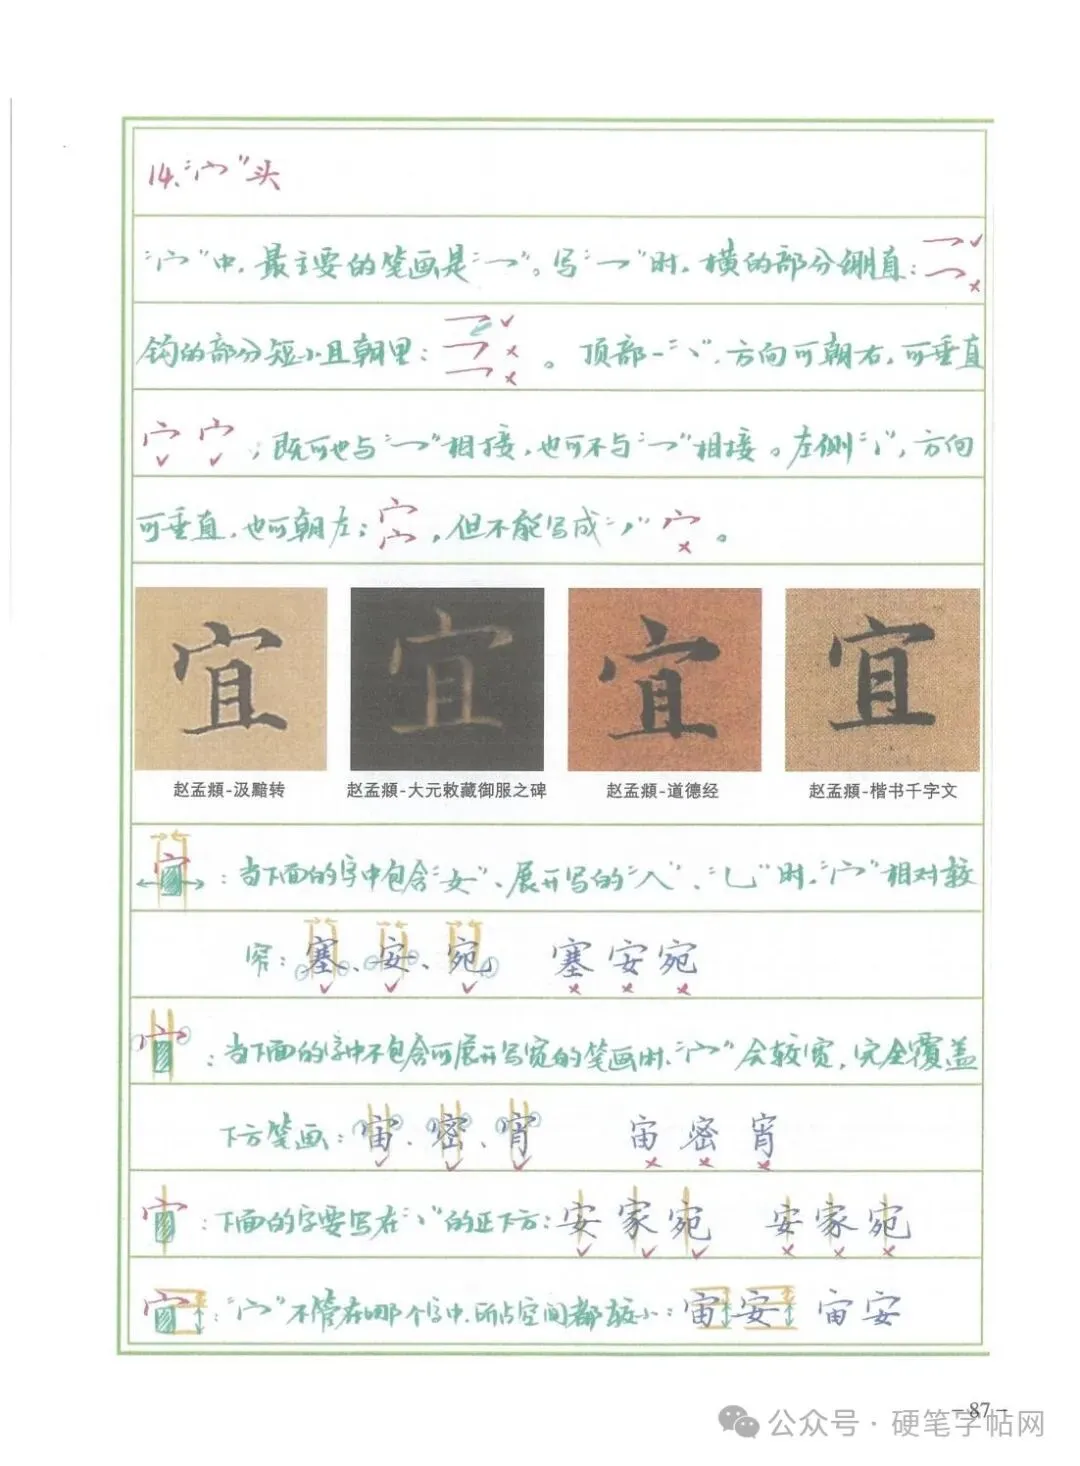 14、“宀”头
“宀”中，最主要的笔画是“乛”。写“乛”时，横的部分绷直：
钩的部分短小且朝里： 。顶部一“丶”，方向可朝右，可垂直
；既可也与“乛”相接，也可不与“乛”相接。左侧“丶”，方向
可垂直，也可朝左； ，但不能写成“丿” 。
宜 宜 宜 宜
赵孟頫-汲黯转 赵孟頫-大元敕藏御服之碑 赵孟頫-道德经 赵孟頫-楷书千字文
：当下面的字中包含“女”、展开写的“乀”、“乚”时，“宀”相对较
窄：塞、安、宛 塞 安 宛
：当下面的字中不包含可展开写宽的笔画时，“宀”会较宽，完全覆盖
下方笔画：宙、密、宵 宙 密 宵
：下面的字要写在“丶”的正下方：安 家 宛 安 家 宛
：“宀”不管在哪个字中，所占空间都较小：宙 安 宙 安
-87-
公众号·硬笔字帖网